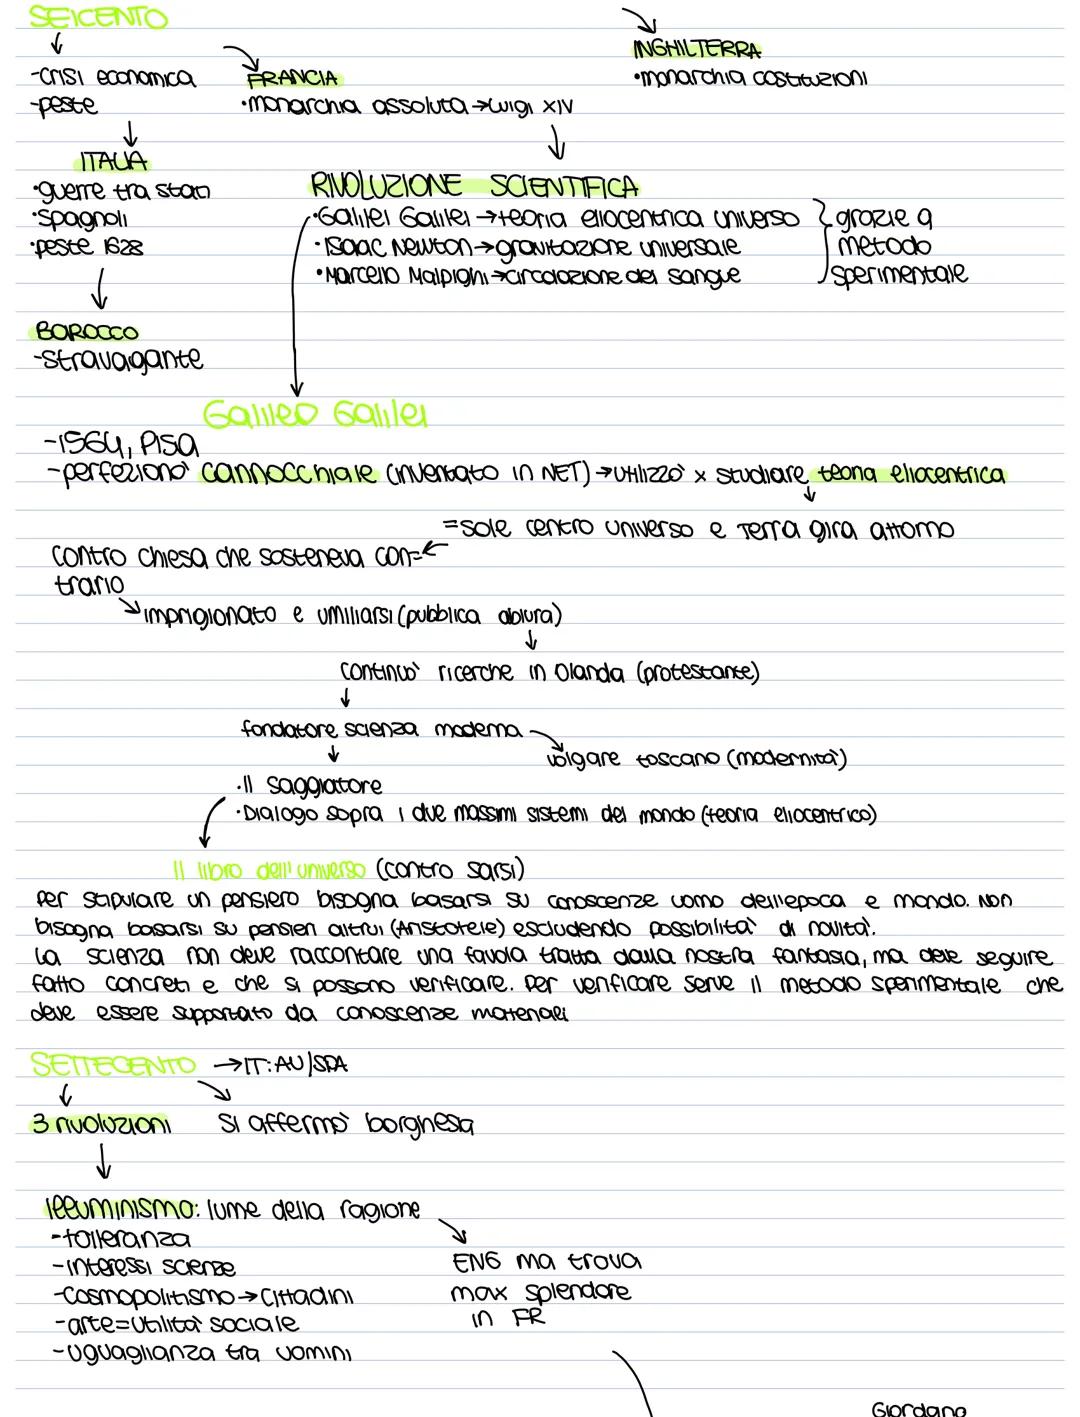 SEICENTO
-crisi economica
-peste
FRANCIA
•monarchia assoluta→Luigi XIV
INGHILTERRA
•monarchia costituzioni
ITALIA
•guerre tra stati
•spagnoli
•peste 1628
RIVOLUZIONE SCIENTIFICA
•Galilei Galilei→teoria eliocentrica universo
•Isaac Newton→gravitazione universale
•Marcello Malpighi→circolazione del sangue
grazie a
metodo
sperimentale
BAROCCO
-stravagante
Galileo Galilei
-1564, Pisa
-perfezionò cannocchiale (inventato in NET)→utilizzò x studiare teoria eliocentrica
=sole centro universo e Terra gira attorno
contro chiesa che sosteneva con=
trario
imprigionato e umiliarsi (pubblica abiura)
continuò ricerche in Olanda (protestante)
fondatore scienza moderna
volgare toscano (modernità)
•Il saggiatore
•Dialogo sopra i due massimi sistemi del mondo (teoria eliocentrico)
Il libro dell'universo (contro sarsi)
Per stipulare un pensiero bisogna basarsi su conoscenze uomo dell'epoca e mondo. Non
bisogna basarsi su pensieri altrui (Aristotele) escludendo possibilità di novità.
La scienza non deve raccontare una favola tratta dalla nostra fantasia, ma deve seguire
fatto concreti e che si possono verificare. Per verificare serve il metodo sperimentale che
deve essere supportato da conoscenze materiali
SETTECENTO →IT: AU/SPA
3 rivoluzioni
si affermò borghesia
Illuminismo: lume della ragione
-tolleranza
-interessi scienze
-cosmopolitismo→cittadini
-arte=utilità sociale
-uguaglianza tra uomini
ENG ma trova
max splendore
in FR
Giordano